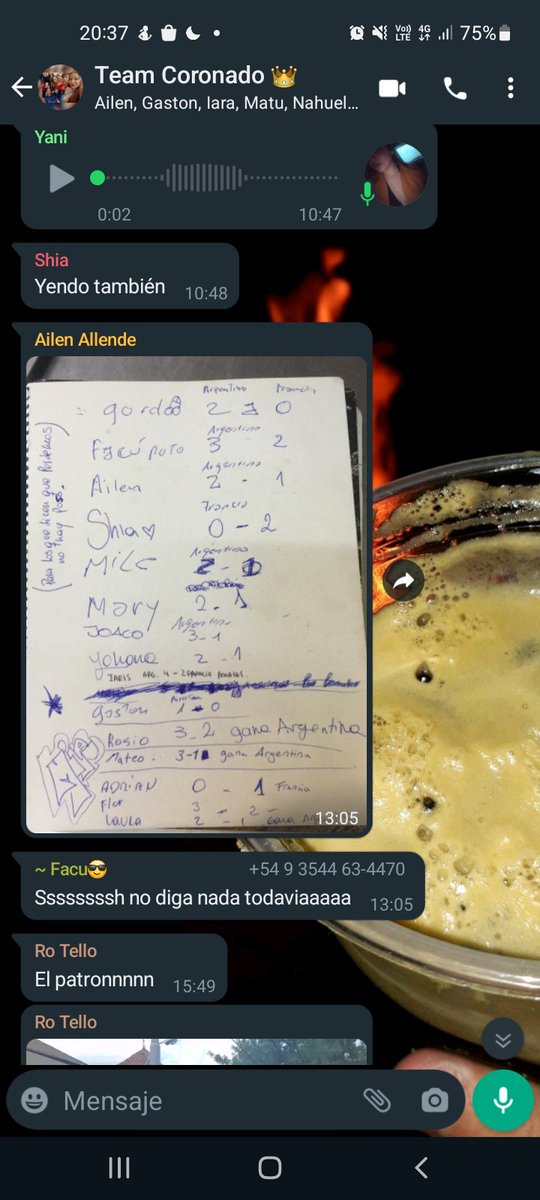 20:37
Vo)) 4G
LTE
75%
Team Coronado
Ailen, Gaston, Iara, Matu, Nahuel...
Yani
0:02 10:47
Shia
Yendo también 10:48
Ailen Allende
Argentina Francia
gorda 2 0
Argentina
3 2
Argentina
Ailen 2 - 1
Francia
Shia 0 - 2
Argentina
Mile 2 - 1
Mary 2 - 1
Argentina
Joaco 3-1
Yohana 2 - 1
ARG. 4 - 2 FRANCIA PENALES.
Gaston 1 - 0
Rosio 3-2 gana Argentina
Mateo. 3-1 gana Argentina
ADRIAN 0 - 1 Francia
Flor 3 - 2-
Laula 2 - 1 gana
(Para los que dicen que perdemos
no hay
13:05
~ Facu +54 9 3544 63-4470
Ssssssssh no diga nada todaviaaaaa 13:05
Ro Tello
El patronnnnn 15:49
Ro Tello
Mensaje